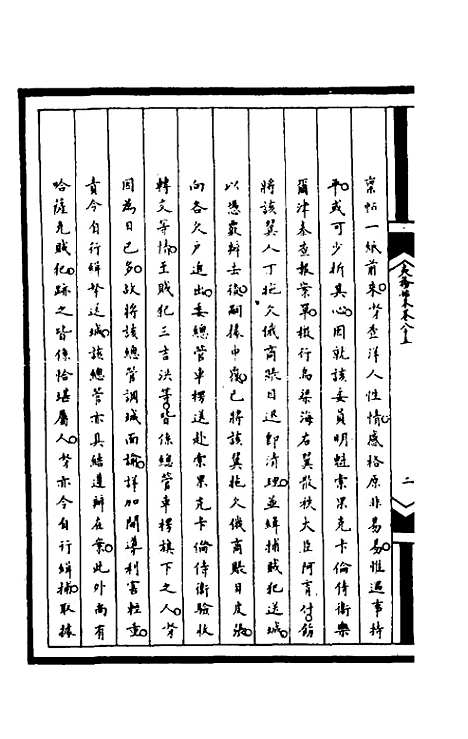 稟帖一紙前來。弟查洋人性情。感格原非易易。惟遇事持
平。或可少折其心。因就該委員明魁索果克卡倫侍衛樂
爾津泰查報案單。檄行烏梁海右翼散秩大臣阿育。付飭
將該翼人丁拖欠俄商賬目迅即清理。並緝捕賊犯送城。
以憑覈辦去後。嗣據申覆。已將該翼拖欠俄商賬目皮張。
向各欠戶追出。委總管車楞送赴索果克卡倫侍衛驗收
轉交等情。至賊犯三吉洪等。皆係總管車楞旗下之人。弟
因為日已多。故將該總管調城面諭。詳加開導利害輕重。
責令自行緝拏送城。該總管亦具結遵辦在案。此外尚有
哈薩克賊犯。跡之皆係恰堪屬人。弟亦令自行緝捕。取據
二